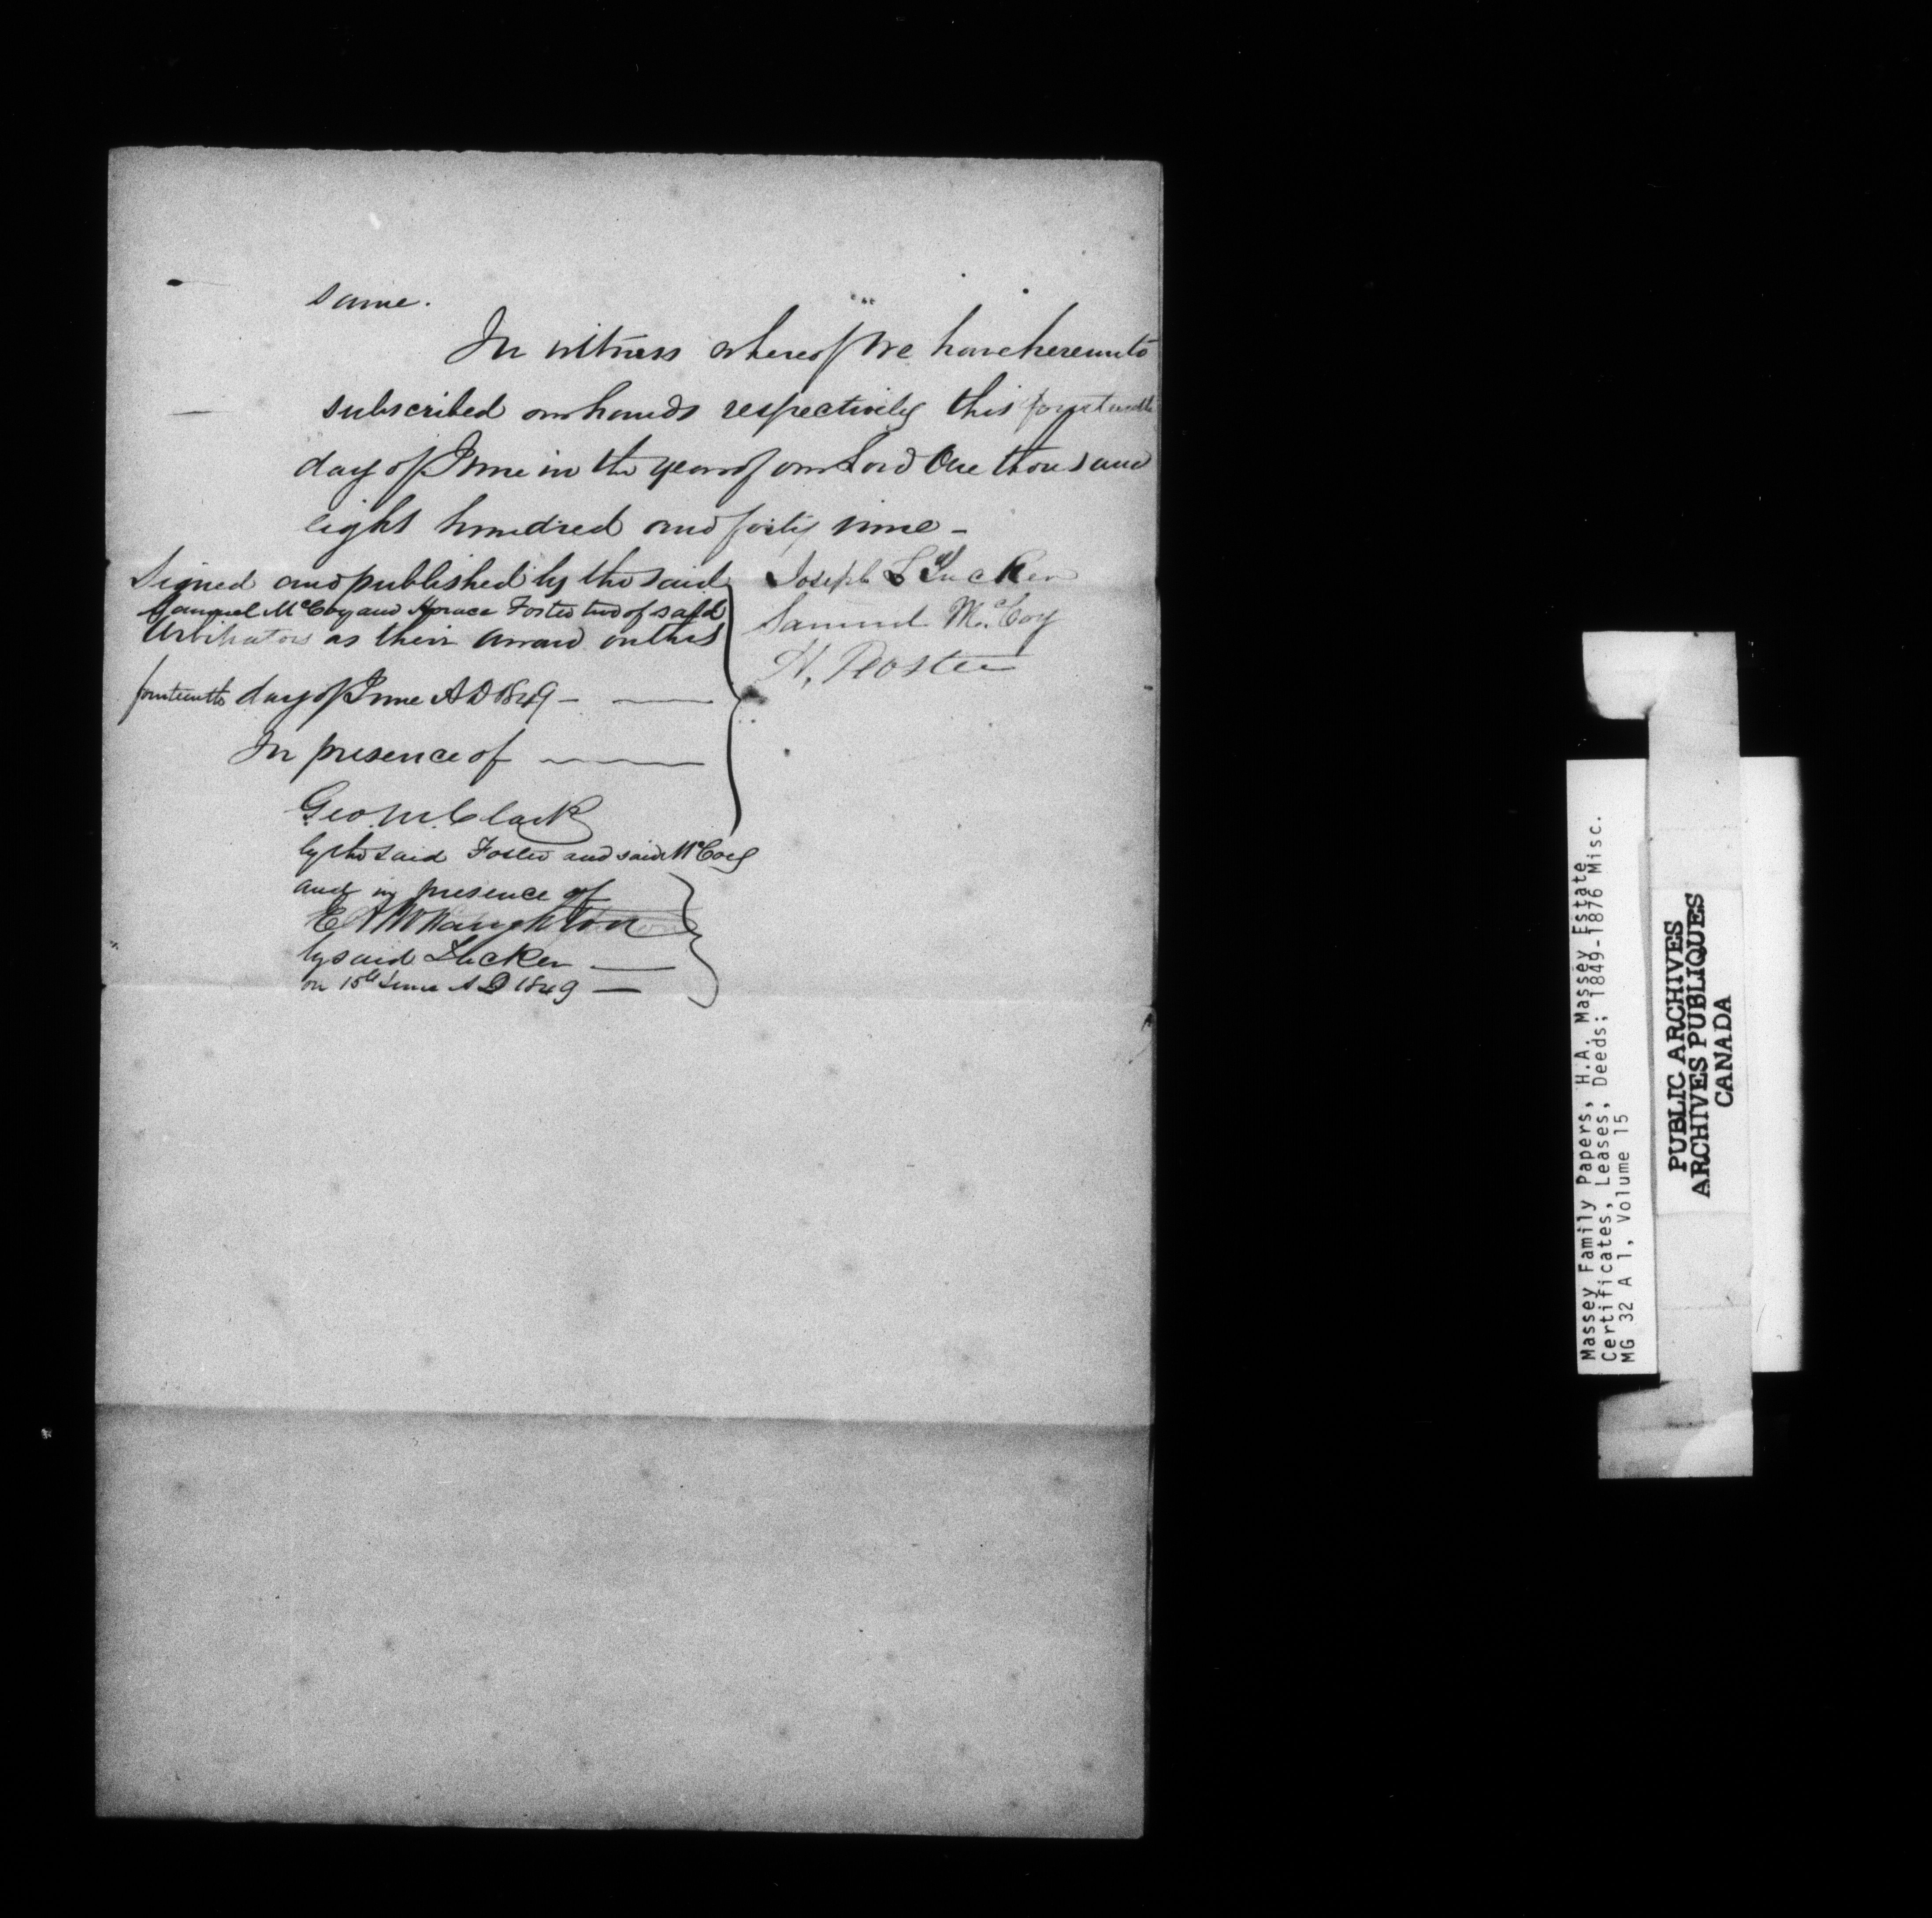 same.
In witness whereof We have hereunto
subscribed our hands respectively this fourteenth
day of June in the year of our Lord One thousand
eight hundred and forty nine -
Signed and published by the said
Samuel McCoy and Horace Foster two of said
Arbitrators as their award on this
fourteenth day of June A D 1849 -
In presence of
Geo. M. Clark
by the said Foster and said McCoy
and in presence of
by said Tucker
on 15th June A D 1849
Joseph L Tucker
Samuel McCoy
H. Foster
Massey Family Papers, H.A. Massey Estate
Certificates, Leases, Deeds; 1849-1876 Misc.
MG 32 A 1, Volume 15
PUBLIC ARCHIVES
ARCHIVES PUBLIQUES
CANADA